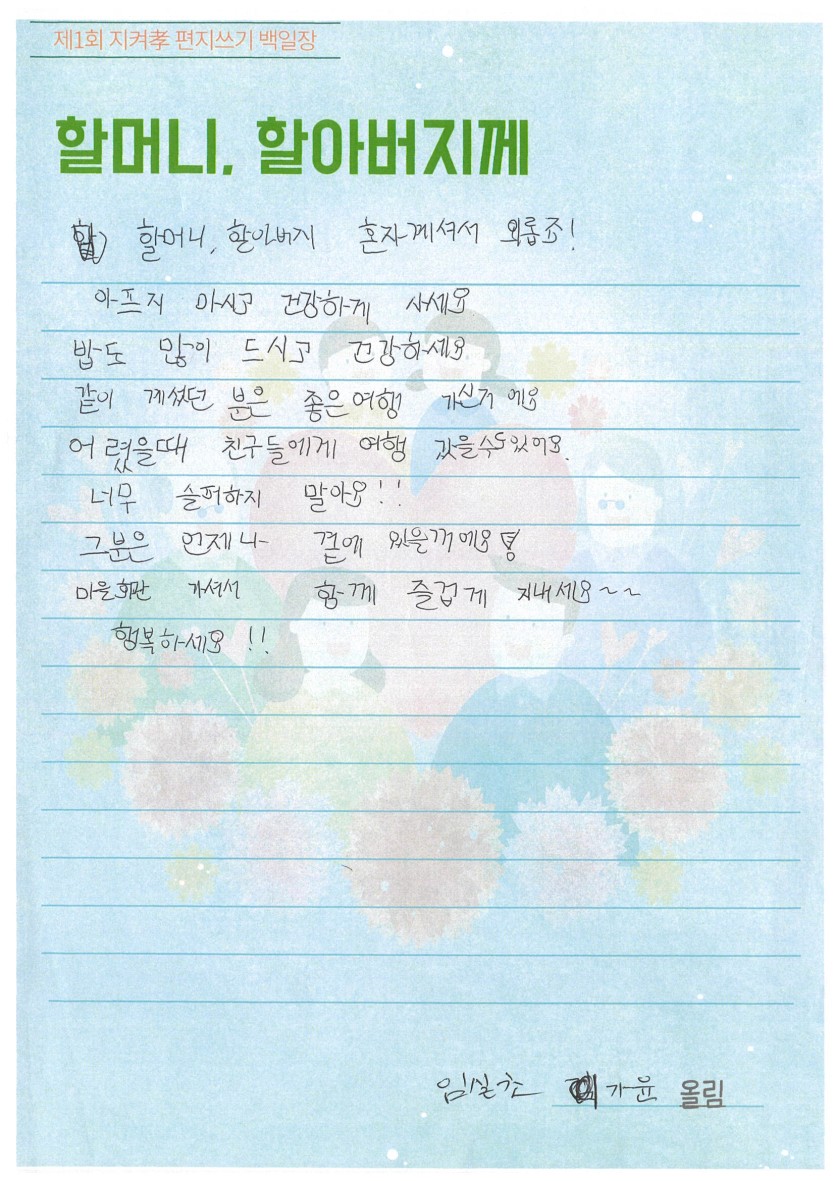 제1회 지켜孝 편지쓰기 백일장
할머니, 할아버지께
할머니, 할아버지 혼자계셔서 외롭죠!
아프지 마시고 건강하게 사세요
밥도 많이 드시고 건강하세요
같이 계셨던 분은 좋은여행 가신거에요
어렸을때 친구들에게 여행 갔을수도있어요.
너무 슬퍼하지 말아요!!
그분은 언제나 곁에 있을꺼에요
마을회관 가셔서 함께 즐겁게 지내세요~~
행복하세요!!
임실초 가윤 올림